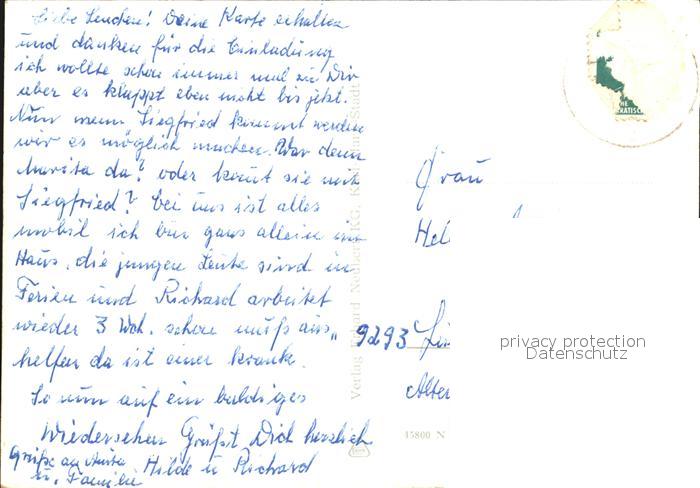 Liebe Lenchen! Deine Karte erhalten
und danken für die Einladung
ich wollte schon immer mal zu Dir
aber es klappt eben nicht bis jetzt.
Nun wenn Siegfried kommt werden
wir es möglich machen. War denn
Marita da? oder kommt sie mit
Siegfried? bei uns ist alles
mobil ich bin ganz allein im
Haus, die jungen Leute sind in
Ferien und Richard arbeitet
wieder 3 Woh. schon muß aus„
helfen da ist einer krank.
So nun auf ein baldiges
Wiedersehen Grüßt Dich herzlich
Hilde u Richard
Grüße an Anita
u. Familie
Frau
Hel
9293
Alter
Verlag
KG,
15800 N
HE
RATISCH
privacy protection
Datenschutz